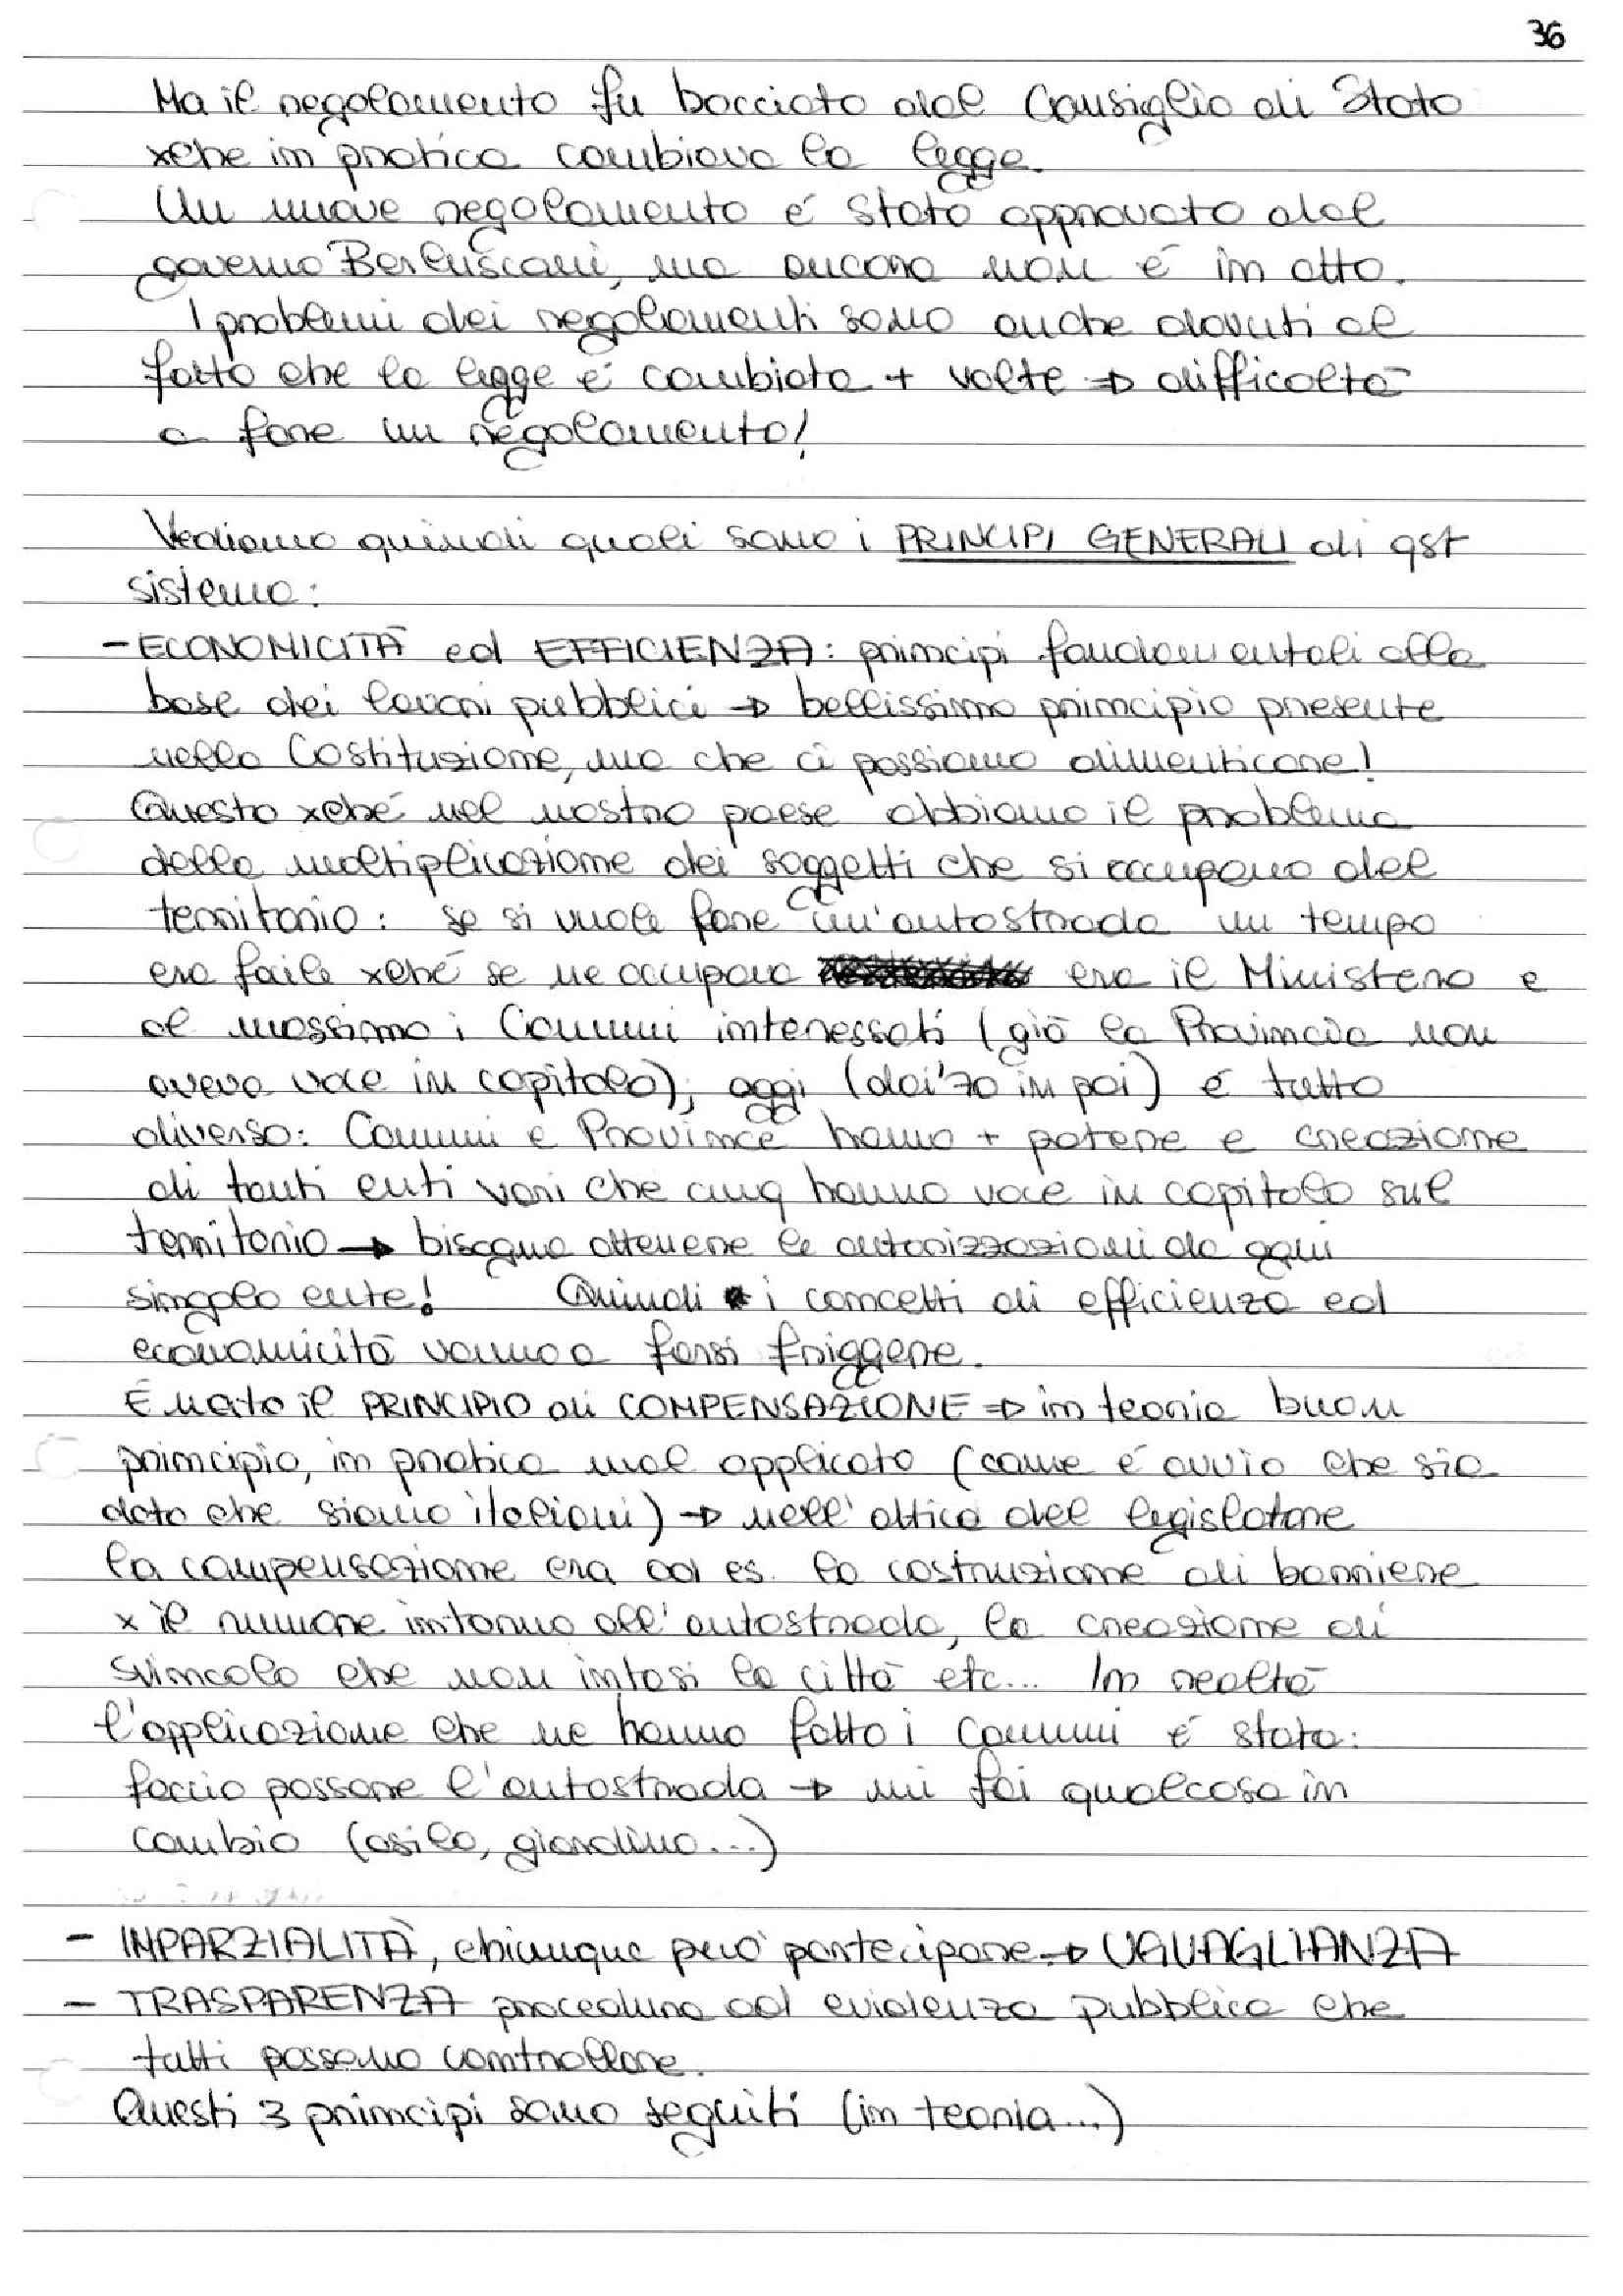 36
Ma il regolamento fu bocciato dal Consiglio di Stato
xche in pratica cambiava la legge.
Un nuove regolamento é stato approvato dal
governo Berlusconi, ma ancora non é in atto.
I problemi dei regolamenti sono anche dovuti al
fatto che la legge é cambiata + volte => difficoltà
a fare un regolamento!
Vediamo quindi quali sono i PRINCIPI GENERALI di qst
sistema:
- ECONOMICITÀ ed EFFICIENZA: principi fondamentali alla
base dei lavori pubblici → bellissimo principio presente
nella Costituzione, ma che ci possiamo dimenticare!
Questo xché nel nostro paese abbiamo il problema
della moltiplicazione dei soggetti che si occupano del
territorio: se si vuole fare un'autostrada un tempo
era facile xché se ne occupava era il Ministero e
al massimo i Comuni interessati (già la Provincia non
aveva voce in capitolo), oggi (dai '70 in poi) é tutto
diverso: Comuni e Province hanno + potere e creazione
di tanti enti vari che cmq hanno voce in capitolo sul
territorio → bisogna ottenere le autorizzazioni da ogni
singolo ente! Quindi i concetti di efficienza ed
economicità vanno a farsi friggere.
É nato il PRINCIPIO di COMPENSAZIONE => in teoria buon
principio, in pratica mal applicato (come é ovvio che sia
dato che siamo italiani) → nell'ottica del legislatore
la compensazione era ad es. la costruzione di barriere
x il rumore intorno all'autostrada, la creazione di
svincolo che non intasi la città etc... In realtà
l'applicazione che ne hanno fatto i comuni é stata:
faccio passare l'autostrada → mi fai qualcosa in
cambio (asilo, giardino...)
- IMPARZIALITÀ, chiunque può partecipare → UGUAGLIANZA
- TRASPARENZA procedura ad evidenza pubblica che
tutti possono controllare.
Questi 3 principi sono seguiti (in teoria...)